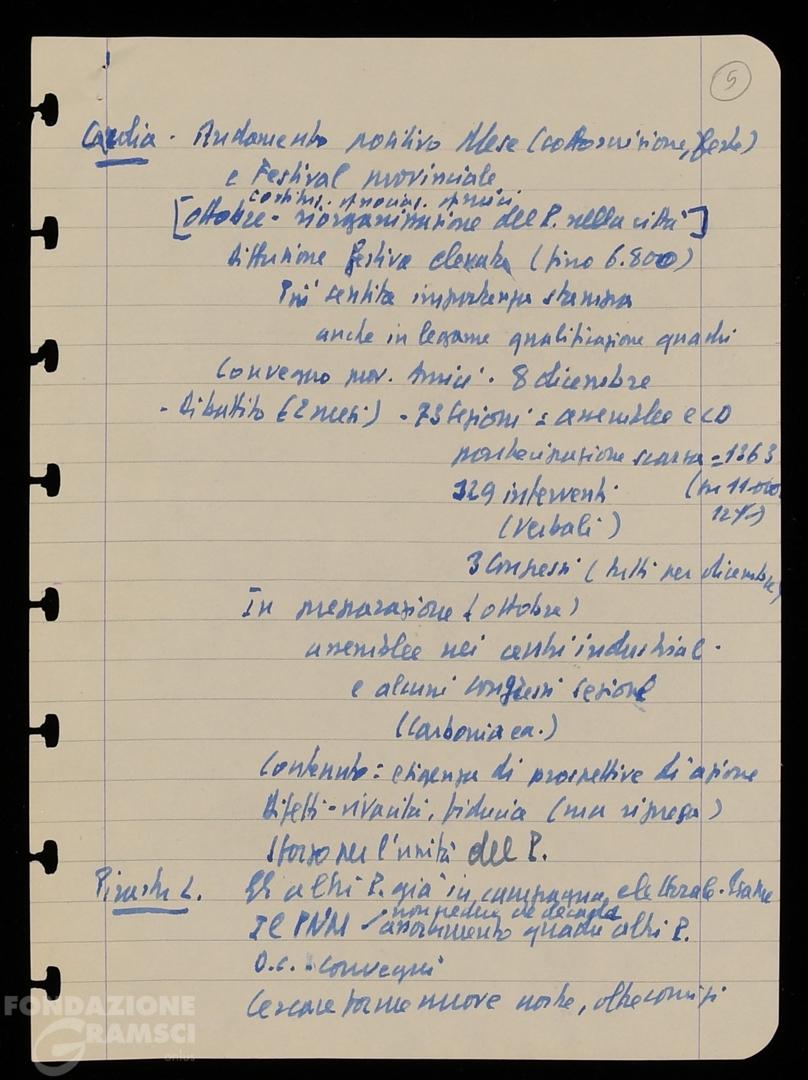 5
Cardia - Andamento positivo Mese (sottoscrizione, feste)
e Festival provinciale
costituz. associaz. amici
[Ottobre - riorganizzazione del P. nella città]
Diffusione festiva elevata (fino 6.800)
Più sentita importanza stampa
anche in legame qualificazione quadri
Convegno prov. Amici - 8 dicembre
- Dibattito (2 mesi) - 73 sezioni = assemblee e CD
partecipazione scarsa = 1363
329 interventi (su 11.000
(verbali) 12%)
3 Congressi (tutti per dicembre)
In preparazione (ottobre)
assemblee nei centri industrial.
e alcuni congressi sezione
(Carbonia ec.)
Contenuto = esigenza di prospettive di azione
Difetti - vivacità, fiducia (ma ripresa)
Sforzo per l'unità del P.
Pirastu L. Gli altri P. già in campagna elettorale.
Il PNM - assorbimento quadri altri P.
D.C. = convegni
Cercare forme nuove nostre, oltre comizi
FONDAZIONE
GRAMSCI
onlus